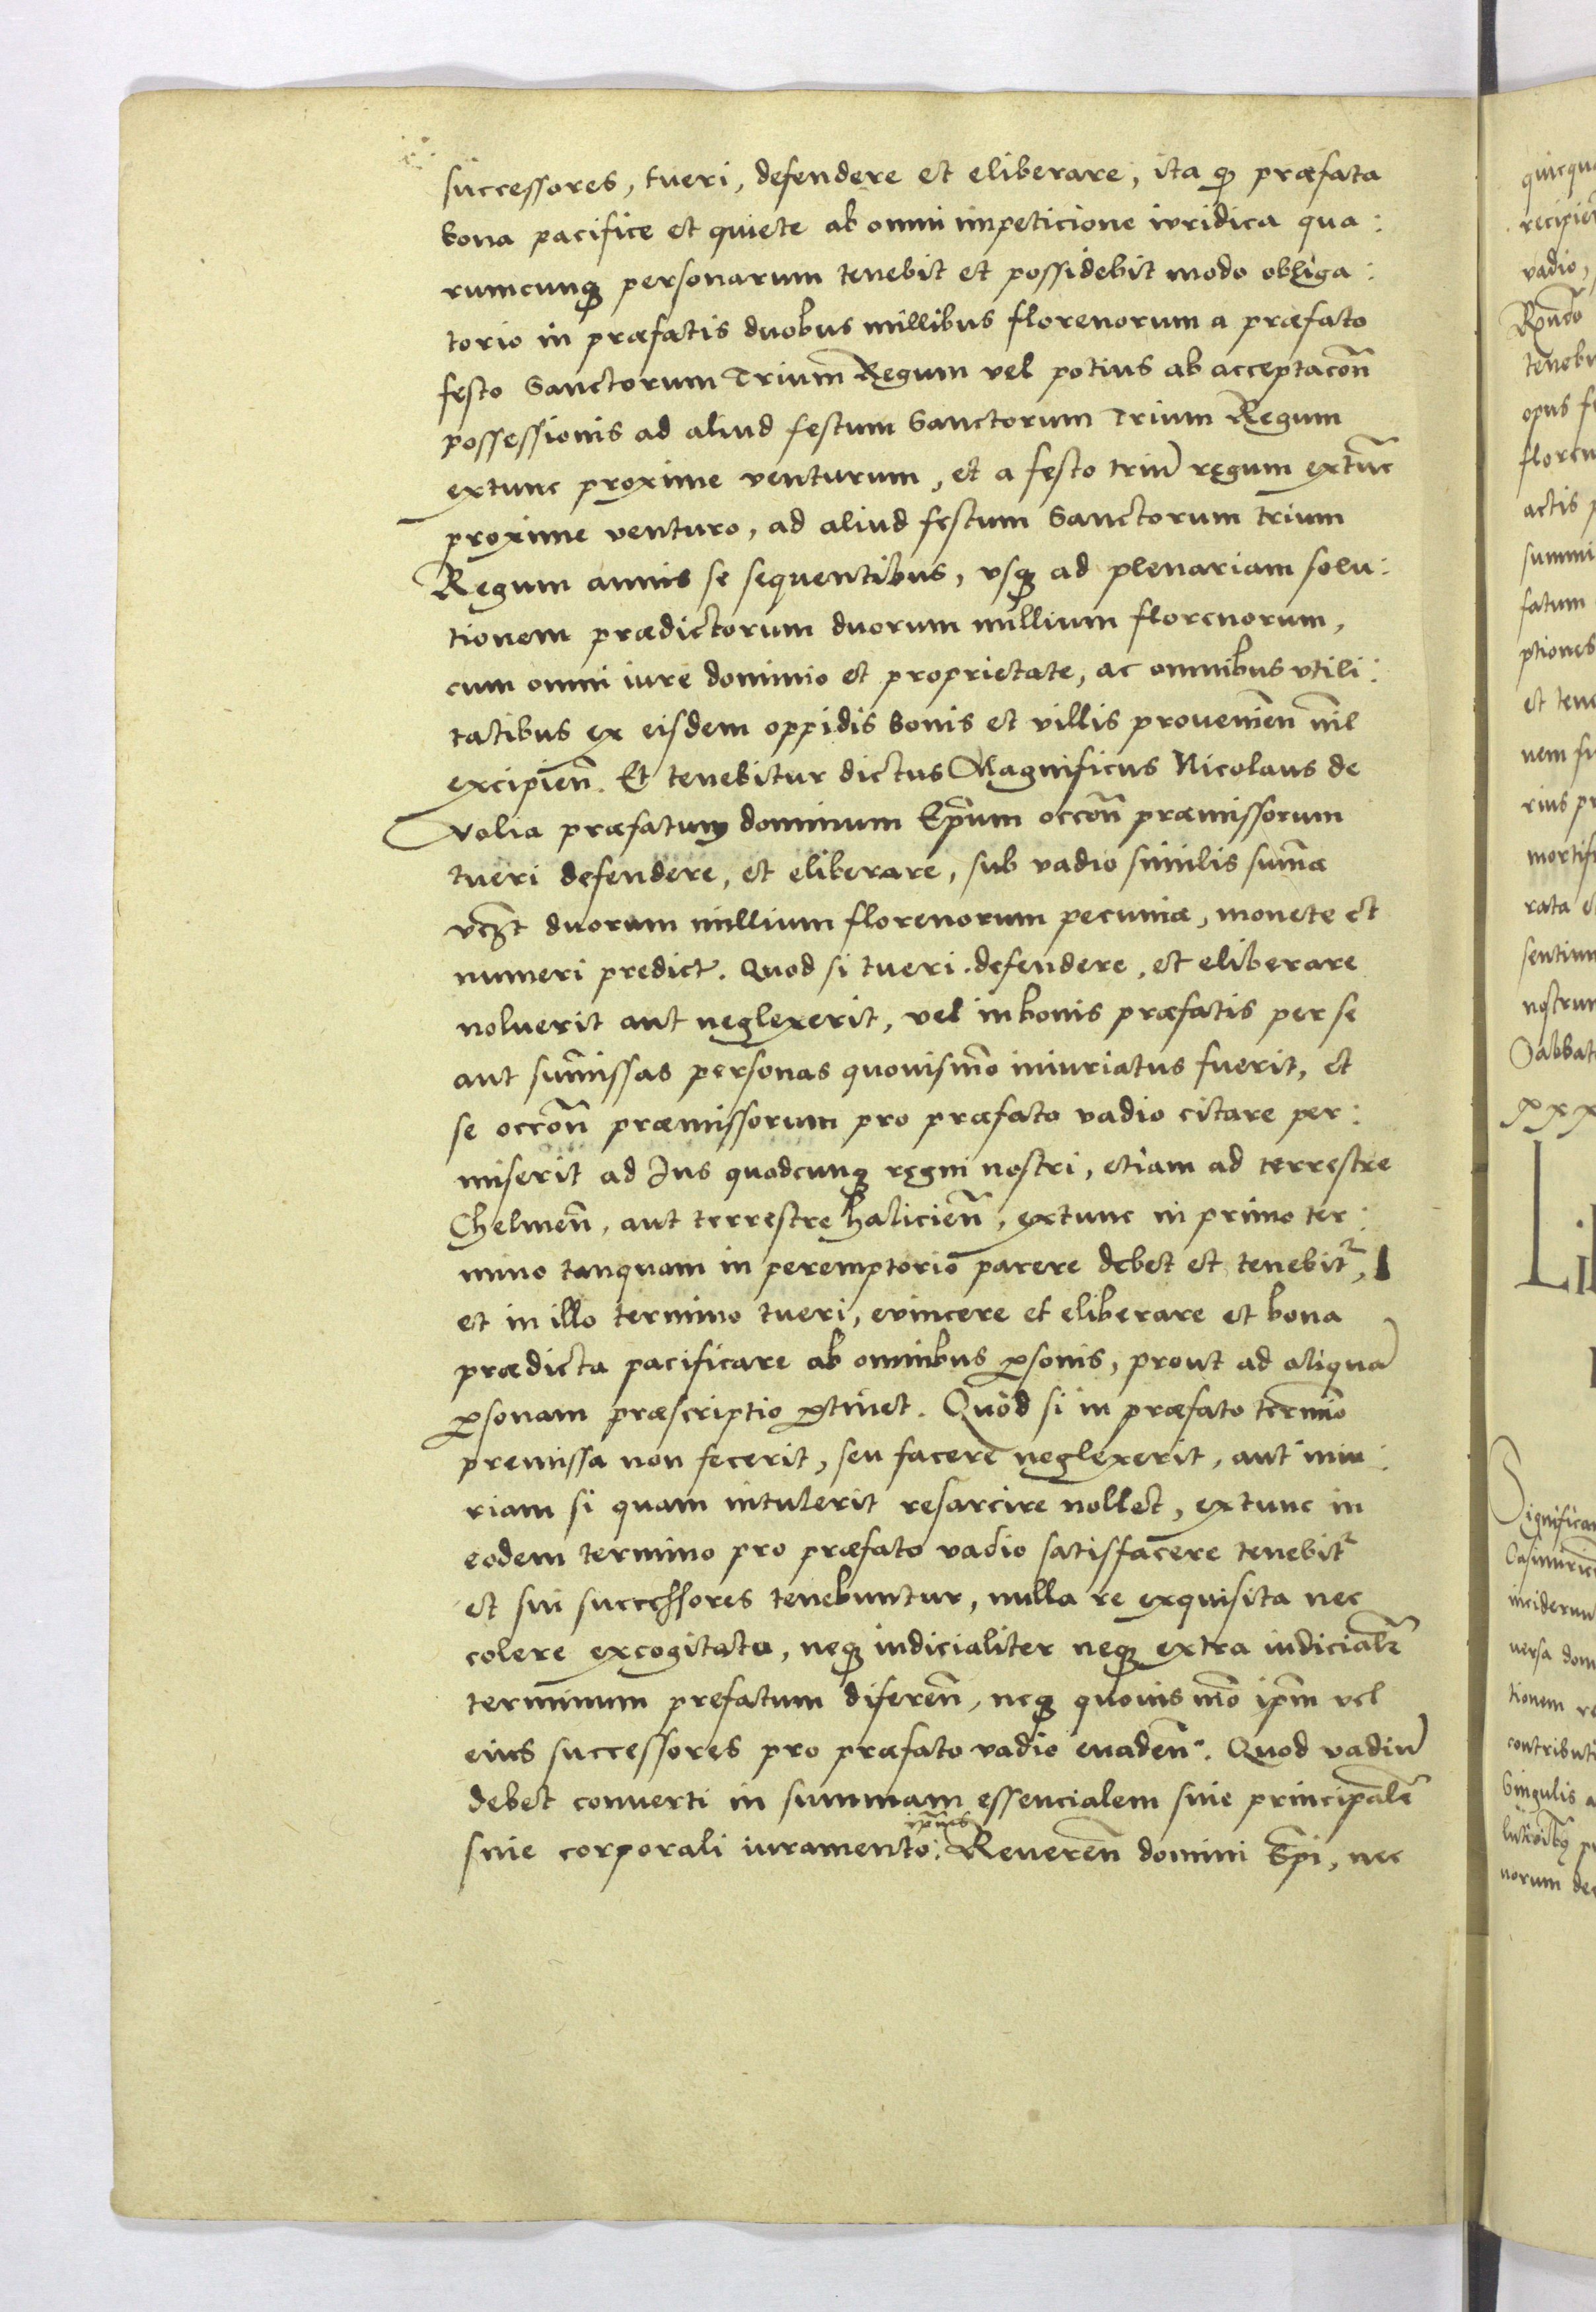 successores, tueri, defendere et eliberare, ita qͻ præfata
bona pacifice et quiete ab omni impeticione iuridica qua:
rumcunqꝫ personarum tenebit et possidebit modo obliga:
torio in præfatis duobus millibus florenorum a præfato
festo Sanctorum Trium Regum vel potius ab acceptacōn
possessionis ad aliud festum Sanctorum Trium Regum
extunc proxime venturum, et a festo triū regum extunc
proxime venturo, ad aliud festum Sanctorum trium
Regum annis se sequentibus, vsqꝫ ad plenariam solu:
tionem prædictorum duorum millium florenorum,
cum omni iure dominio et proprietate, ac omnibus vtili:
tatibus ex eisdem oppidis bonis et villis prouenien̄ nīl
excipien̄. Et tenebitur dictus Magnificus Nicolaus de
Volia præfatum dominum Ep̄um occōn præmissorum
tueri defendere, et eliberare, sub vadio similis sum̄æ
vcꝫt duorum millium florenorum pecuniæ, monete et
numeri predict. Quod si tueri defendere, et eliberare
noluerit aut neglexerit, vel in bonis præfatis per se
aut sum̄issas personas quouismō iniuriatus fuerit, et
se occōn præmissorum pro præfato vadio citare per:
miserit ad Ius quodcunqꝫ regni nostri, etiam ad terrestre
Chelmen̄, aut terrestre halicien̄, extunc in primo ter:
mino tanquam in peremptorio parere debet et tenebit᷑,
et in illo termino tueri, euincere et eliberare et bona
prædicta pacificare ab omnibus ꝑsonis, prout ad aliquā
ꝑsonam præscriptio ꝑtinet. Quod si in præfato termīo
premissa non fecerit, seu facere neglexerit, aut iniu:
riam si quam intulerit resarcire nollet, extunc in
eodem termino pro præfato vadio satisfacere tenebit᷑
et sui successores tenebuntur, nulla re exquisita nec
colere excogitato, neqꝫ iudicialiter neqꝫ extra iudicialr̄
terminum prefatum diferen̄, neqꝫ quouis mō ip̄m vel
eius successores pro præfato vadio euaden̄. Quod vadiū
debet conuerti in summam essencialem siue principalē
siue corporali iuramento: ip̄ius Reueren̄ domini Ep̄i, nec